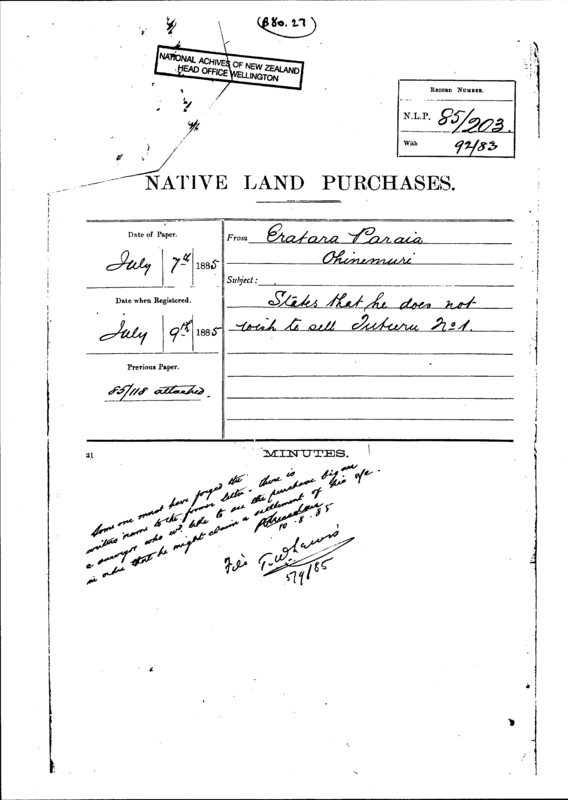 (B80.27)
NATIONAL ACHIVES OF NEW ZEALAND
HEAD OFFICE WELLINGTON
RECORD NUMBER.
N.L.P. 85/203.
With 92/83
NATIVE LAND PURCHASES.
Date of Paper.
July 7th 1885
Date when Registered.
July 9th 1885
Previous Paper.
85/118 attached.
From Eratara Paraia
Ohinemuri
Subject:
States that he does not
wish to sell No 1.
21
MINUTES.
Some one must have forged the
writers name to the former letter. There is
a surveyor who wd like to see the purchase
in order that he might claim a settlement of his a/c.
10.8.85
File T.W. Lewis
5/9/85